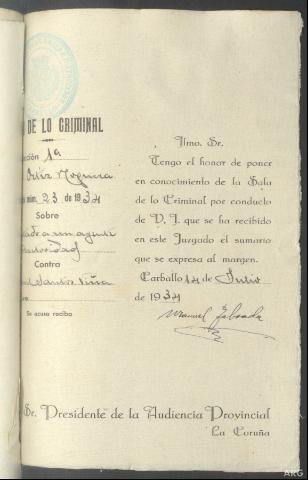 DE LO CRIMINAL
ción 1ª
Ortiz Noguera
núm. 23 de 1934
Sobre
Contra
Santos Viña
Se acusa recibo
Ilmo. Sr.
Tengo el honor de poner
en conocimiento de la Sala
de lo Criminal por conducto
de V. I. que se ha recibido
en este Juzgado el sumario
que se expresa al margen.
Carballo 14 de Julio
de 1934
Manuel Taboada
Sr. Presidente de la Audiencia Provincial
La Coruña
AKG